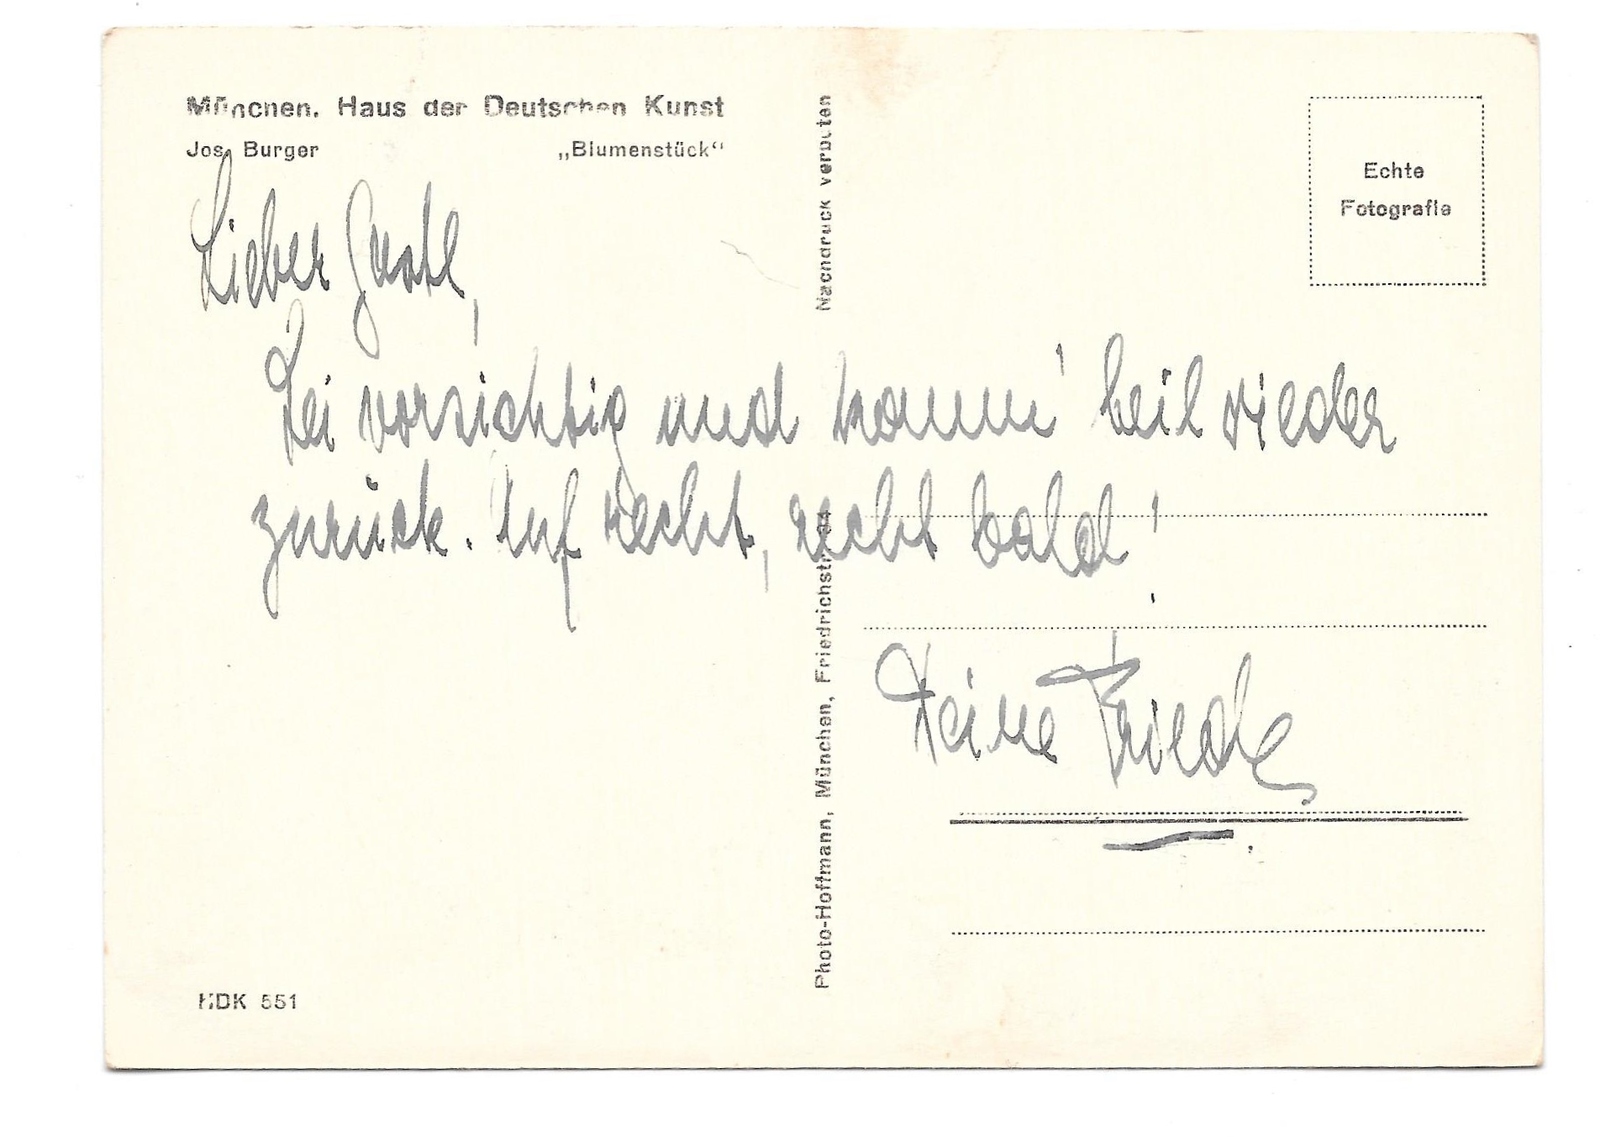 München. Haus der Deutschen Kunst
Jos. Burger „Blumenstück“
Lieber Gustl,
Sei vorsichtig und komm' heil wieder
zurück. Auf recht, recht bald!
Deine Friedl
HDK 551
Nachdruck verboten
Photo-Hoffmann, München, Friedrichstr. 34
Echte
Fotografie